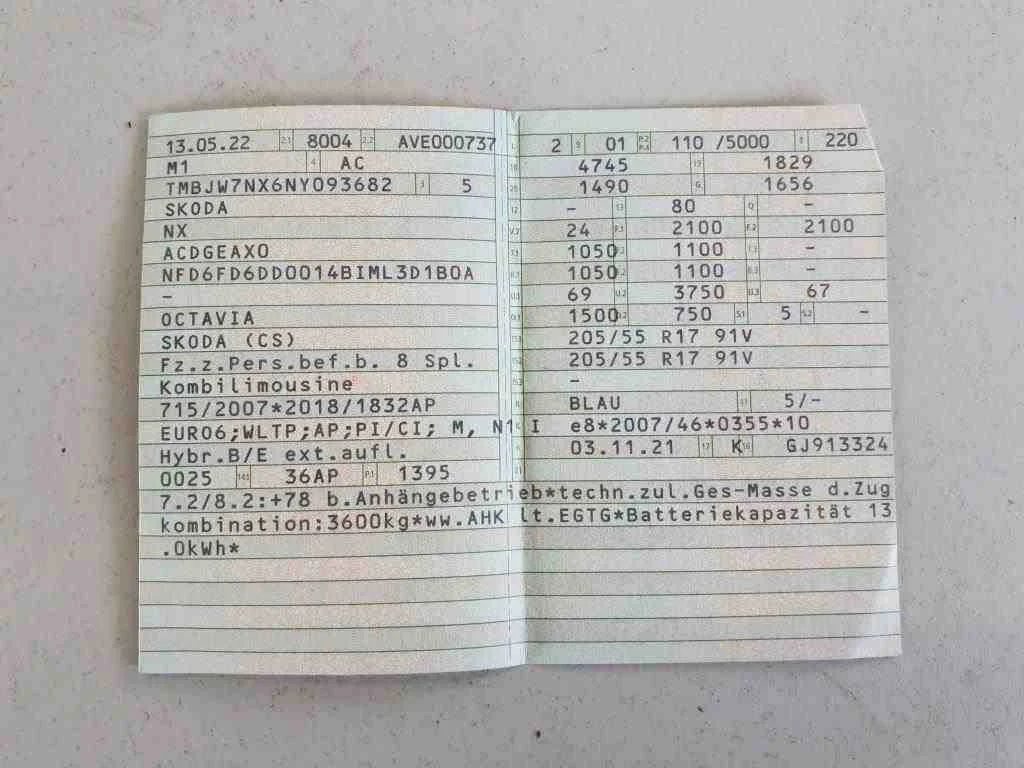 13.05.22 2.1 8004 2.2 AVE000737
M1 4 AC
TMBJW7NX6NY093682 3 5
SKODA
NX
ACDGEAX0
NFD6FD6DD0014BIML3D1B0A
-
OCTAVIA
SKODA (CS)
Fz.z.Pers.bef.b. 8 Spl.
Kombilimousine
715/2007*2018/1832AP
EURO6;WLTP;AP;PI/CI; M, N1 I
Hybr.B/E ext.aufl.
0025 36AP P.1 1395
2 9 01 110 /5000 220
4745 1829
1490 G 1656
- 13 80 Q -
24 F.1 2100 F.2 2100
1050 1100 -
1050 1100 -
69 U.2 3750 U.3 67
1500 750 S.1 5 S.2 -
205/55 R17 91V
205/55 R17 91V
-
BLAU 5/-
e8*2007/46*0355*10
03.11.21 17 K 16 GJ913324
7.2/8.2:+78 b.Anhängebetrieb*techn.zul.Ges-Masse d.Zug
kombination:3600kg*ww.AHK lt.EGTG*Batteriekapazität 13
.0kWh*